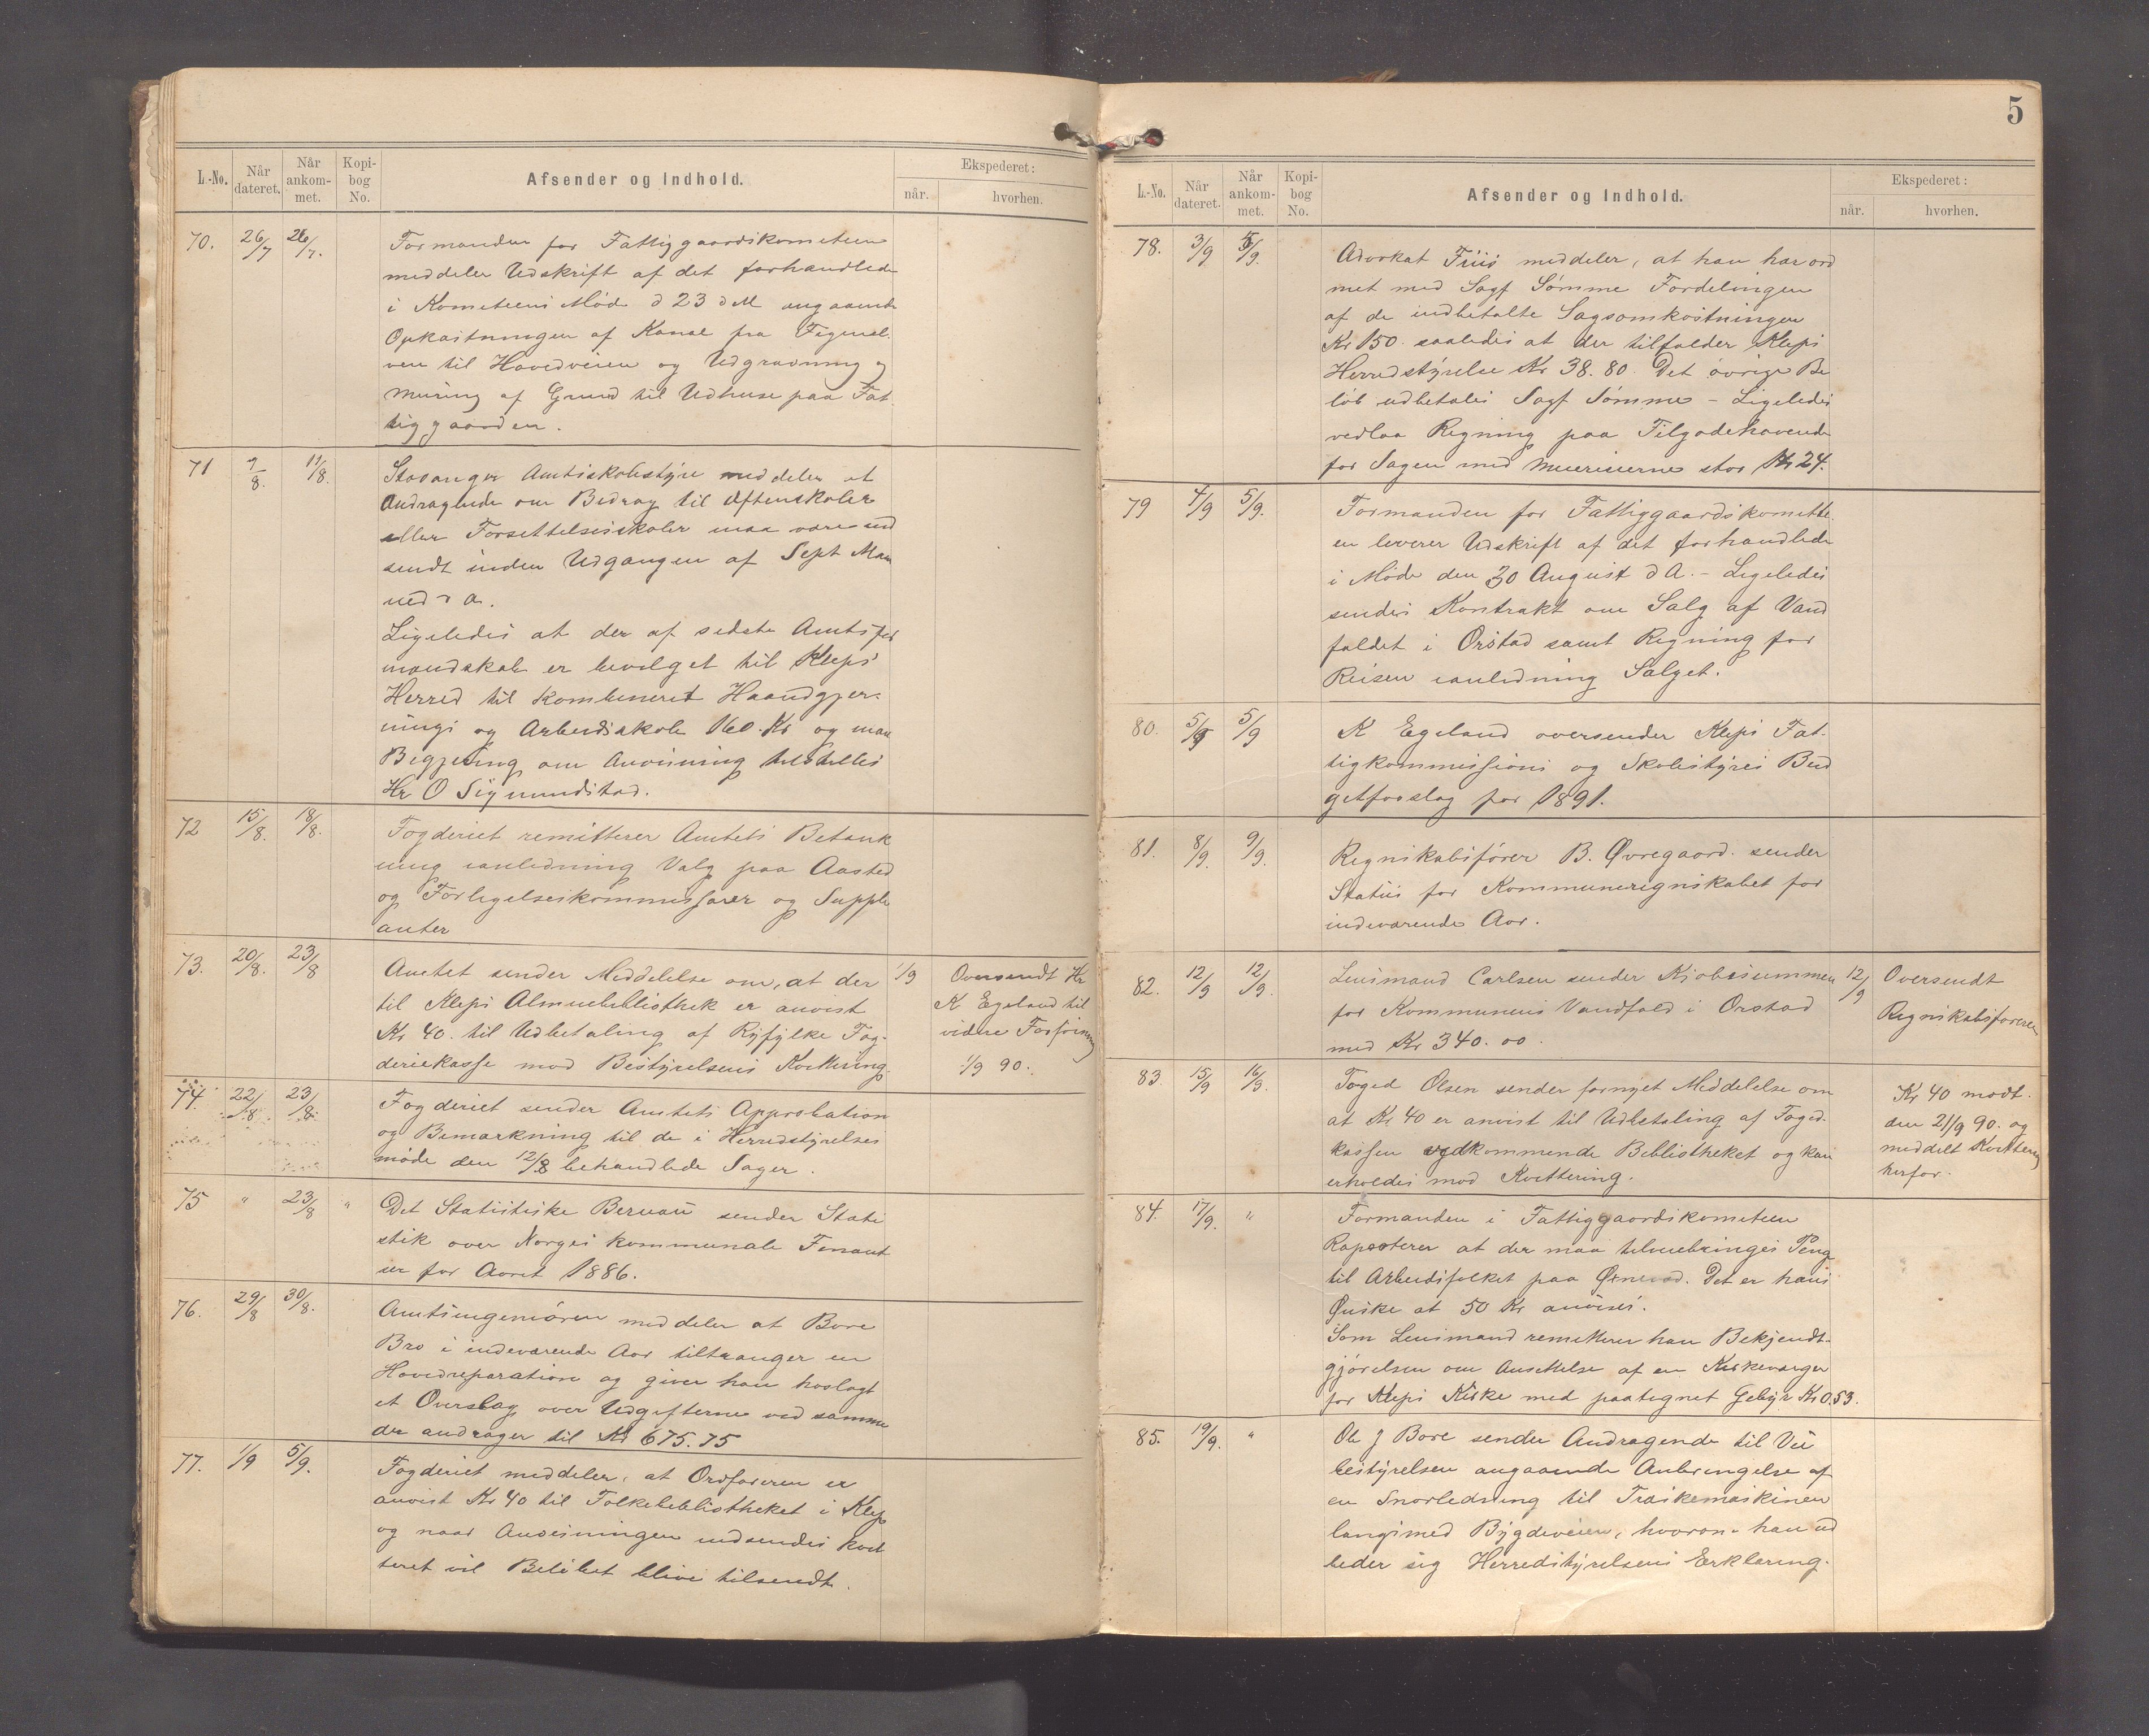 L.-No. Når dateret. Når ankom-met. Kopi-bog No. Afsender og Indhold. Ekspederet: når. hvorhen.
70. 26/7 26/7. Formanden for Fattiggaardskometeen
meddeler Udskrift af det forhandlede
i Kometeens Møde d 23 d M angaaende
Opkastningen af Kanal fra Figguel.
ven til Hovedveien og Udgravning og
Muring af Grund til Udhuse paa Fat
tiggaarden.
71 9/8. 11/8. Stavanger Amtsskolestyre meddeler at
Andragende om Bedrag til Aftenskoler
eller Forsettelsesskoler maa være ind
sendt inden Udgangen af Sept Maa
ned d a.
Ligeledes at der af sidste Amtsfor
mandskab er bevilget til Kleps
Herred til kombineret Haandgjer-
nings og Arbeidsskole 160. Kr og maa
Begjering om Anvisning tilstilles
Hr O Sigmundstad.
72 15/8. 18/8. Fogderiet remitterer Amtets Betænk
ning ianledning Valg paa Aasted
og Forligelseskommissærer og Supple
anter
73. 20/8. 23/8 Amtet sender Meddelelse om, at der 1/9 Oversendt Hr
til Kleps Almuebibliothek er anvist K Egeland til
Kr 40. til Udbetaling af Ryfylke Fog- videre Forføining
deriekasse mod Bestyrelsens Kvittering. 1/9 90.
74. 22/8 23/8. Fogderiet sender Amtets Approbation
og Bemærkning til de i Herredstyrelses
møde den 12/8 behandlede Sager.
75 " 23/8 " Det Statistiske Beruau sender Stati
stik over Norges kommunale Finant
ser for Aaret 1886.
76. 29/8 30/8. Amtsingeniøren meddeler at Bore
Bro i indeværende Aar tiltrænger en
Hovedreparation og giver han hoslagt
et Overslag over Udgifterne ved samme
der andrager til Kr 675.75
77. 1/9 5/9. Fogderiet meddeler, at Ordføreren er
anvist Kr 40 til Folkebibliotheket i Klep
og naar Anvisningen indsendes kvit
teret vil Beløbet blive tilsendt.
5
L.-No. Når dateret. Når ankom-met. Kopi-bog No. Afsender og Indhold. Ekspederet: når. hvorhen.
78. 3/9 5/9. Advokat Friis meddeler, at han har ord
net med Sagf Sømme Fordelingen
af de indbetalte Sagsomkostninger
Kr 150. saaledes at der tilfalder Kleps
Herredstyrelse Kr 38.80. Det øvrige Be
løb udbetales Sagf Sømme – Ligeledes
vedlaa Regning paa Tilgodehavende
for Sagen med Murerne stor Kr 24.
79 4/9 5/9. Formanden for Fattiggaardskomitte
en leverer Udskrift af det forhandlede
i Møde den 30 August d A. – Ligeledes
sendes Kontrakt om Salg af Vand
faldet i Orstad samt Regning for
Reisen ianledning Salget.
80. 5/9 5/9 K Egeland oversender Kleps Fat-
tigkommissions og Skolestyres Bud
getforslag for 1891.
81. 8/9. 9/9. Regnskabsfører B. Øvregaard. sender
Status for Kommuneregnskabet for
indeværende Aar.
82. 12/9 12/9. Lensmand Carlsen sender Kjøbesummen 12/9 Oversendt
for Kommunens Vandfald i Orstad Regnskabsføreren
med Kr 340.00.
83. 15/9 16/9. Foged Olsen sender fornyet Meddelelse om Kr 40 modt.
at Kr 40 er anvist til Udbetaling af Foged. den 21/9 90. og
kassen vedkommende Bibliotheket og kan meddelt Kvittering
erholdes mod Kvittering. herfor.
84. 17/9. " Formanden i Fattiggaardskometeen
Rapporterer at der maa tilveiebringes Peng
til Arbeidsfolket paa Ørnevad. Det er hans
Ønske at 50 Kr anvises.
Som Lensmand remitterer han Bekjendt-
gjørelsen om Ansettelse af en Kirkeværger
for Kleps Kirke med paategnet Gebyr Kr 0.53.
85. 19/9. " Ole J Bore sender Andragende til Vei
bestyrelsen angaaende Anbringelse af
en Snorledning til Træskemaskinen
langsmed Bygdeveien, hvorom han ud
beder sig Herredstyrelsens Erklæring.